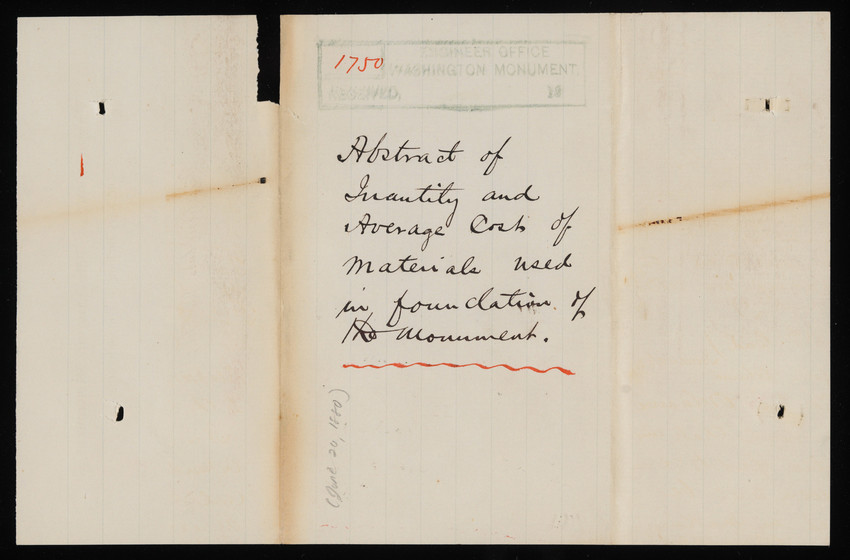 1750
ENGINEER OFFICE
WASHINGTON MONUMENT.
RECEIVED, 18
Abstract of
Quantity and
Average Cost of
Materials used
in foundation of
the Monument.
(June 20, 1880)